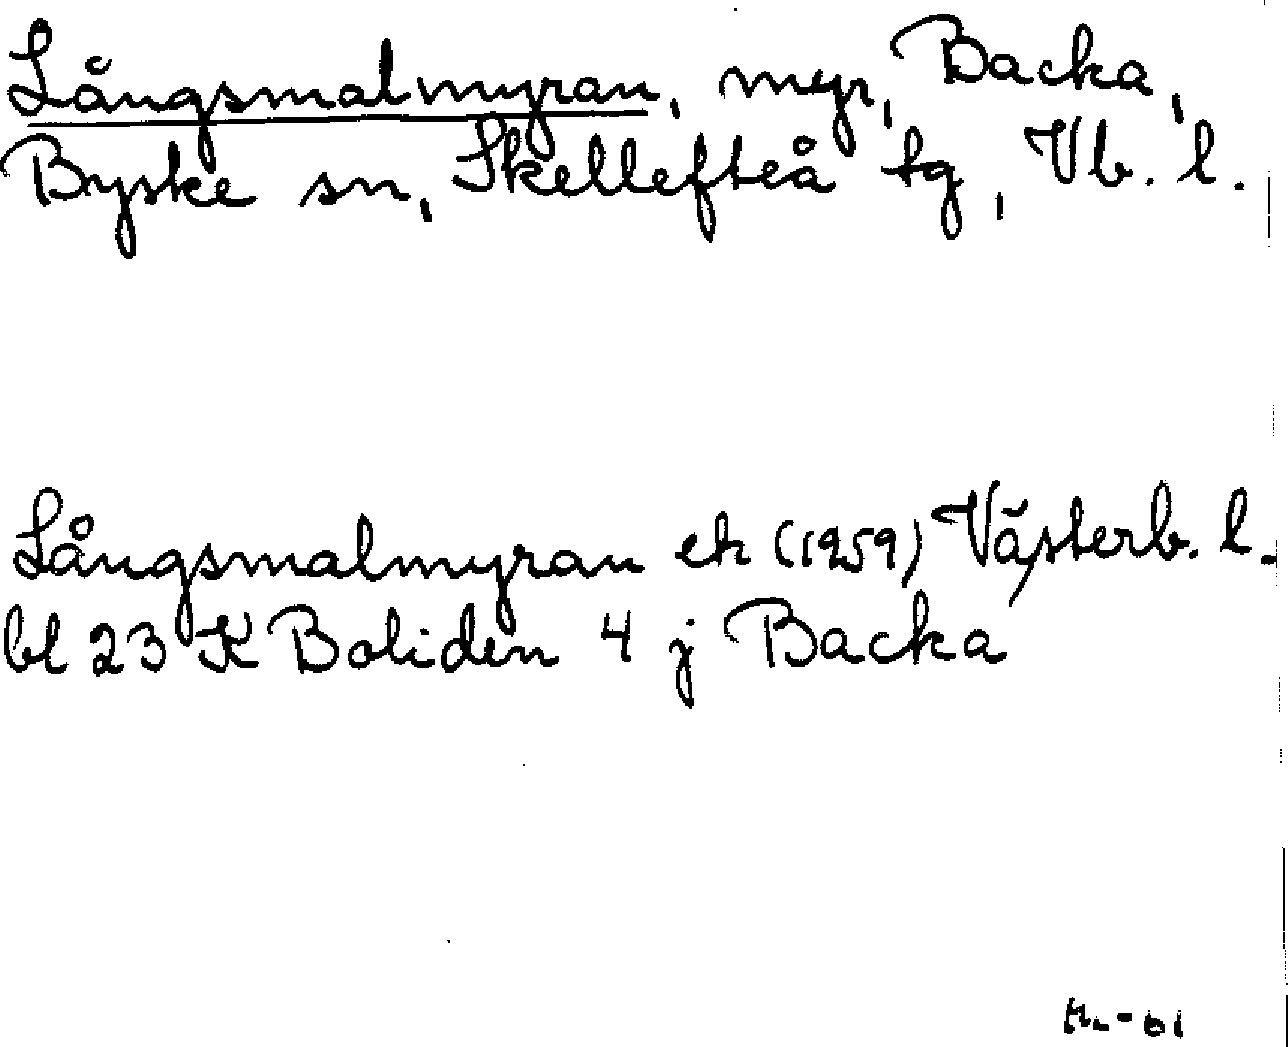 Långsmalmyran, myr, Backa,
Byske sn, Skellefteå tg, Vb. l.
Långsmalmyran ek (1959) Västerb. l.
bl 23 K Boliden 4 j Backa